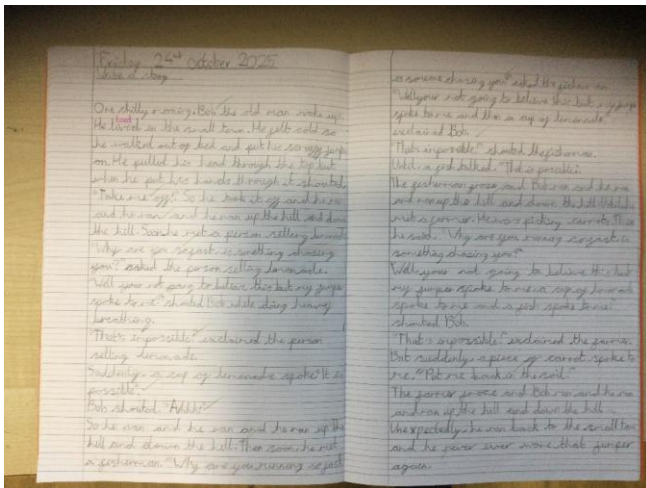 Friday 24th October 2025
Write a story
One chilly morning, Bob the old man woke up.
He lived in the small town. He felt cold so
he walked out of bed and put his so soggy jumper
on. He pulled his head through the top but
when he put his hands through it shouted,
"Take me off!" So he took it off and he ran
and he ran and he ran up the hill and down
the hill. Soon he met a person selling lemonade.
"Why are you so fast, is something chasing
you?" asked the person selling lemonade.
"Well your not going to believe this but my jumper
spoke to me" shouted Bob while doing heavy
breathing.
"That's impossible!" exclaimed the person
selling lemonade.
Suddenly, a cup of lemonade spoke. "It is
possible".
Bob shouted. "Ahhhh!"
So he ran and he ran and he ran up the
hill and down the hill. Then soon, he met
a fisherman. "Why are you running so fast
is someone chasing you?" asked the fisherman
"Well your not going to believe this but my jumper
spoke to me and then a cup of lemonade"
exclaimed Bob.
"That's impossible!" shouted the fisherman.
Until a fish talked. "That is possible".
The fisherman froze and Bob ran and he ran
and ran up the hill and down the hill. Until he
met a farmer. He was picking carrots. Then
he said. "Why are you running so fast is
something chasing you?"
"Well your not going to believe this but
my jumper spoke to me, a cup of lemonade
spoke to me and a fish spoke to me!"
shouted Bob.
"That's impossible!" exclaimed the farmer.
But suddenly a piece of carrot spoke to
me. "Put me back in the soil."
The farmer froze and Bob ran and he ran
and ran up the hill and down the hill.
Unexpectedly, he ran back to the small town
and he never ever wore that jumper
again.